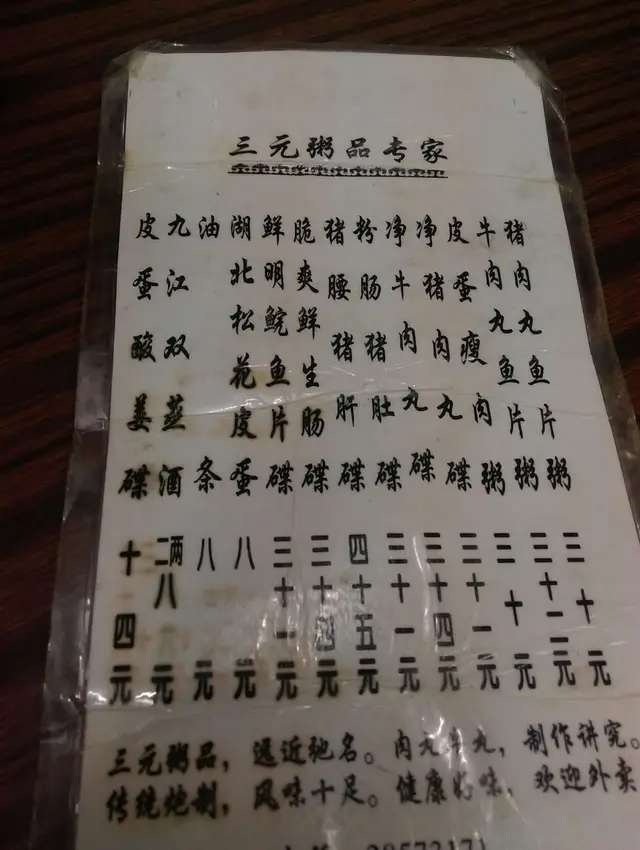 三元粥品专家
猪肉丸鱼片粥 三十元
牛肉丸鱼片粥 三十二元
皮蛋瘦肉粥 三十元
净猪肉丸碟 三十一元
净牛肉丸碟 三十四元
粉肠猪肚碟 三十一元
猪腰猪肝碟 四十五元
脆爽鲜生肠碟 三十四元
鲜明鲩鱼片碟 三十一元
湖北松花皮蛋 八元
油条 八元
九江双蒸酒 二两八元
皮蛋酸姜碟 十四元
三元粥品，遐近驰名。肉丸牛丸，制作讲究。
传统炮制，风味十足。健康好味，欢迎外卖